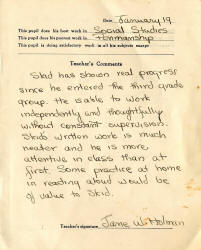 Date January 19
This pupil does his best work in Social Studies
This pupil does his poorest work in Penmanship
This pupil is doing satisfactory work in all his subjects except
Teacher's Comments
Skid has shown real progress
since he entered the third grade
group. He is able to work
independently and thoughtfully
without constant supervision.
Skid's written work is much
neater and he is more
attentive in class than at
first. Some practice at home
in reading aloud would be
of value to Skid.
Teacher's signature Jane W. Holman